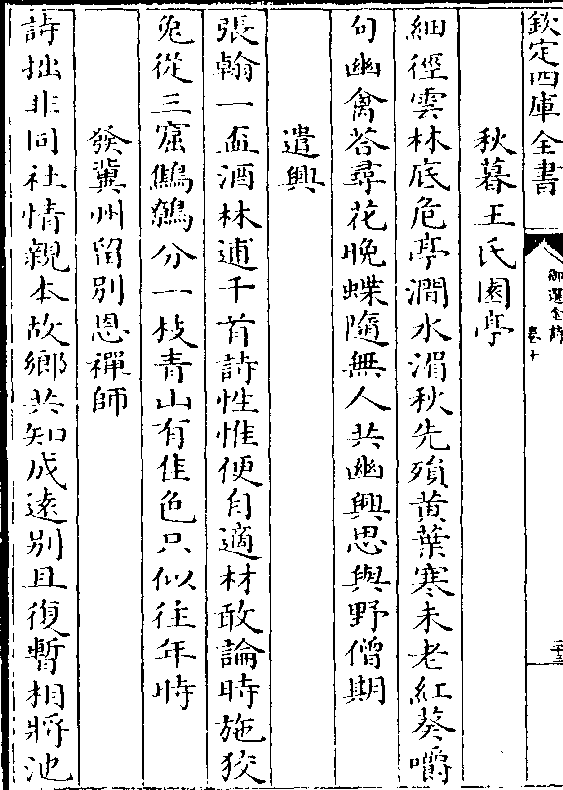 欽定四庫全書
御選金詩
卷十
二十三
秋暮王氏園亭
細徑雲林底危亭澗水湄秋先殞黄葉寒未老紅葵嚼
句幽禽荅尋花晚蝶隨無人共幽興思與野僧期
遣興
張翰一盃酒林逋千首詩性惟便自適材敢論時施狡
兔從三窟鷦鷯分一枝青山有佳色只似往年時
發冀州留别恩禪師
詩拙非同社情親本故鄉共知成逺别且復暫相將池